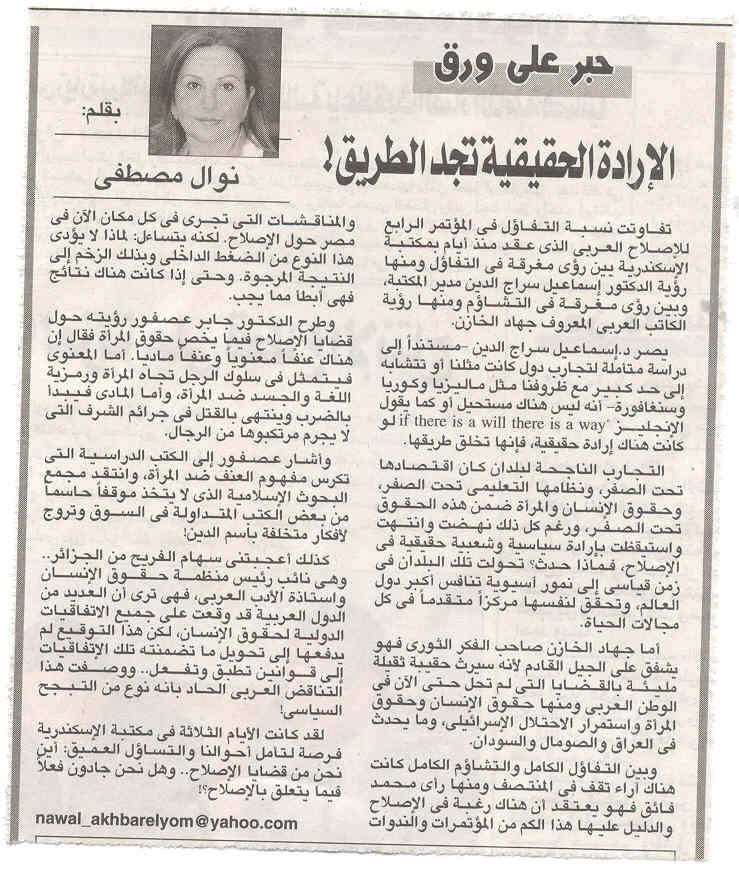 حبر على ورق
الإرادة الحقيقية تجد الطريق!
بقلم:
نوال مصطفى
تفاوتت نسبة التفاؤل فى المؤتمر الرابع
للإصلاح العربى الذى عقد منذ أيام بمكتبة
الإسكندرية بين رؤى مغرقة فى التفاؤل ومنها
رؤية الدكتور إسماعيل سراج الدين مدير المكتبة،
وبين رؤى مغرقة فى التشاؤم ومنها رؤية
الكاتب العربى المعروف جهاد الخازن.
يصر د.إسماعيل سراج الدين -مستنداً إلى
دراسة متأملة لتجارب دول كانت مثلنا أو تتشابه
إلى حد كبير مع ظروفنا مثل ماليزيا وكوريا
وسنغافورة- أنه ليس هناك مستحيل أو كما يقول
الإنجليز "if there is a will there is a way لو
كانت هناك إرادة حقيقية، فإنها تخلق طريقها.
التجارب الناجحة لبلدان كان اقتصادها
تحت الصفر، ونظامها التعليمى تحت الصفر،
وحقوق الإنسان والمرأة ضمن هذه الحقوق
تحت الصفر، ورغم كل ذلك نهضت وانتهت
واستيقظت بإرادة سياسية وشعبية حقيقية فى
الإصلاح، فماذا حدث؟ تحولت تلك البلدان فى
زمن قياسى إلى نمور أسيوية تنافس أكبر دول
العالم، وتحقق لنفسها مركزاً متقدماً فى كل
مجالات الحياة.
أما جهاد الخازن صاحب الفكر الثورى فهو
يشفق على الجيل القادم لأنه سيرث حقيبة ثقيلة
مليئة بالقضايا التى لم تحل حتى الآن فى
الوطن العربى ومنها حقوق الإنسان وحقوق
المرأة واستمرار الاحتلال الإسرائيلى، وما يحدث
فى العراق والصومال والسودان.
وبين التفاؤل الكامل والتشاؤم الكامل كانت
هناك آراء تقف فى المنتصف ومنها رأى محمد
فائق فهو يعتقد أن هناك رغبة فى الإصلاح
والدليل عليها هذا الكم من المؤتمرات والندوات
والمناقشات التى تجرى فى كل مكان الآن فى
مصر حول الإصلاح. لكنه يتساءل: لماذا لا يؤدى
هذا النوع من الضغط الداخلى وبذلك الزخم إلى
النتيجة المرجوة. وحتى إذا كانت هناك نتائج
فهى أبطأ مما يجب.
وطرح الدكتور جابر عصفور رؤيته حول
قضايا الإصلاح فيما يخص حقوق المرأة فقال إن
هناك عنفاً معنوياً وعنفاً مادياً. أما المعنوى
فيتمثل فى سلوك الرجل تجاه المرأة ورمزية
اللغة والجسد ضد المرأة، وأما المادى فيبدأ
بالضرب وينتهى بالقتل فى جرائم الشرف التى
لا يجرم مرتكبوها من الرجال.
وأشار عصفور إلى الكتب الدراسية التى
تكرس مفهوم العنف ضد المرأة، وانتقد مجمع
البحوث الإسلامية الذى لا يتخذ موقفاً حاسماً
من بعض الكتب المتداولة فى السوق وتروج
لأفكار متخلفة باسم الدين!
كذلك أعجبتنى سهام الفريح من الجزائر..
وهى نائب رئيس منظمة حقوق الإنسان
واستاذة الأدب العربى، فهى ترى أن العديد من
الدول العربية قد وقعت على جميع الاتفاقيات
الدولية لحقوق الإنسان، لكن هذا التوقيع لم
يدفعها إلى تحويل ما تضمنته تلك الإتفاقيات
إلى قوانين تطبق وتفعل.. ووصفت هذا
التناقض العربى الحاد بانه نوع من التبجح
السياسى!
لقد كانت الأيام الثلاثة فى مكتبة الإسكندرية
فرصة لتأمل أحوالنا والتساؤل العميق: أين
نحن من قضايا الإصلاح.. وهل نحن جادون فعلاً
فيما يتعلق بالإصلاح؟!
nawal_akhbarelyom@yahoo.com